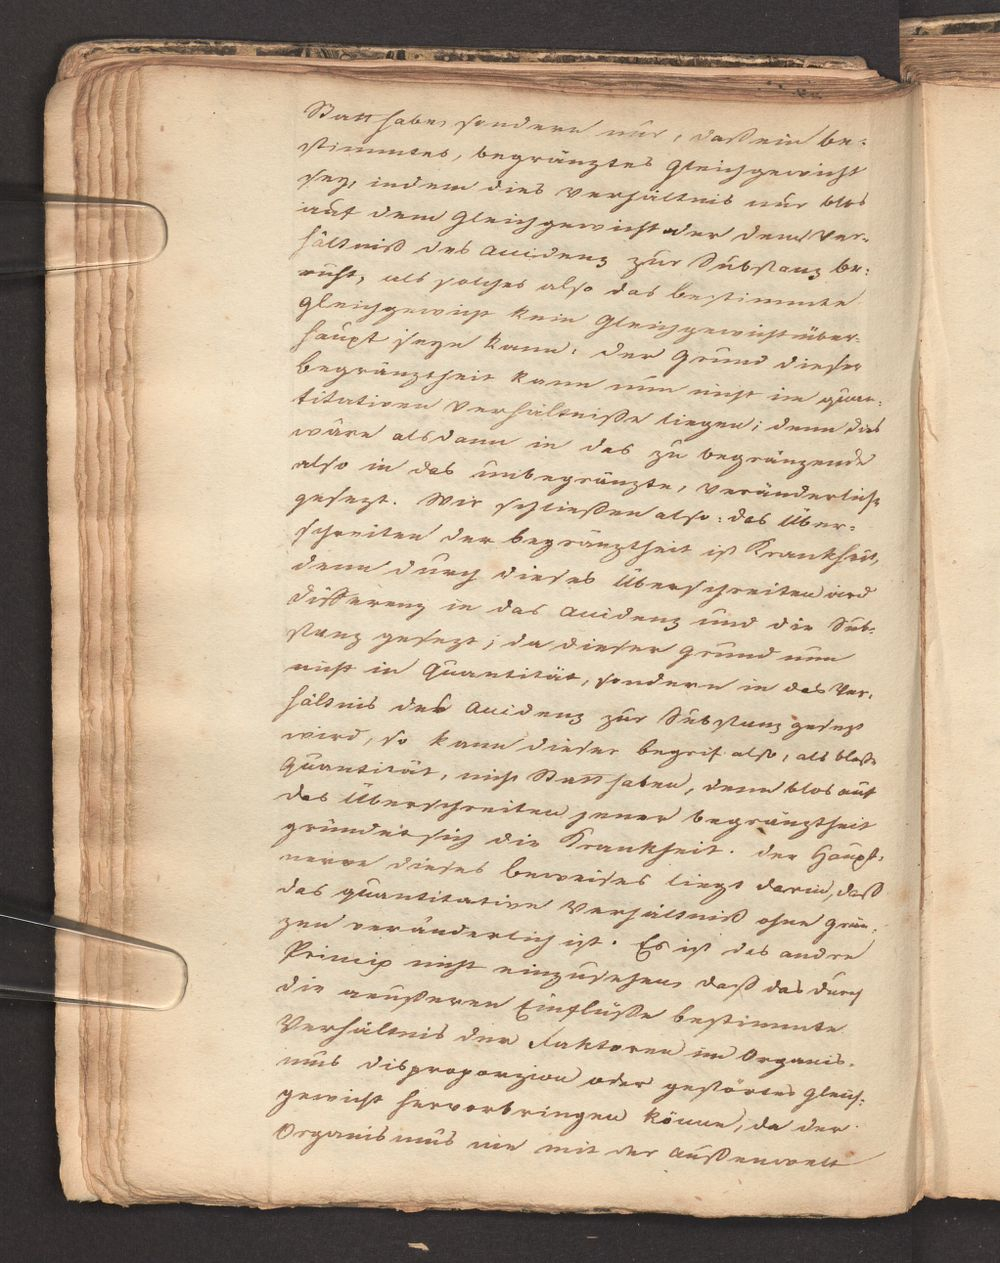 Statt habe, sondern nur, daß ein be-
stimmtes, begränztes Gleichgewicht
sey, indem dies Verhältnis nur blos
auf dem Gleichgewicht oder dem Ver-
hältniß des Accidenz zur Substanz be-
ruht, als solches also das bestimmte
Gleichgewicht kein Gleichgewicht über-
haupt seyn kann. Der Grund dieser
Begränztheit kann nun nicht im quan-
titativen Verhältniße liegen; denn dies
wäre alsdann in das zu begränzende
also in das unbegränzte, veränderliche
gesezt. Wir schließen also: das Über-
schreiten der Begränztheit ist Krankheit,
denn durch dieses Überschreiten wird
Differenz in das Accidenz und die Sub-
stanz gesezt; da dieser Grund nun
nicht in Quantität, sondern in das Ver-
hältnis des Accidenz zur Substanz gesezt
wird, so kann dieser Begrif also, als bloße
Quantität, nicht Statt haben, denn blos auf
das Überschreiten jener Begränztheit
gründet sich die Krankheit. Der Haupt-
nerve dieses Beweises liegt darin, daß
das quantitative Verhältniß ohne Grän-
zen veränderlich ist. Es ist das andre
Princip nicht einzusehen, daß das durch
die aeußeren Einflüße bestimmte
Verhältnis der Faktoren im Organis-
mus Disproporzion oder gestörtes Gleich-
gewicht hervorbringen könne, da der
Organismus nie mit der Außenwelt